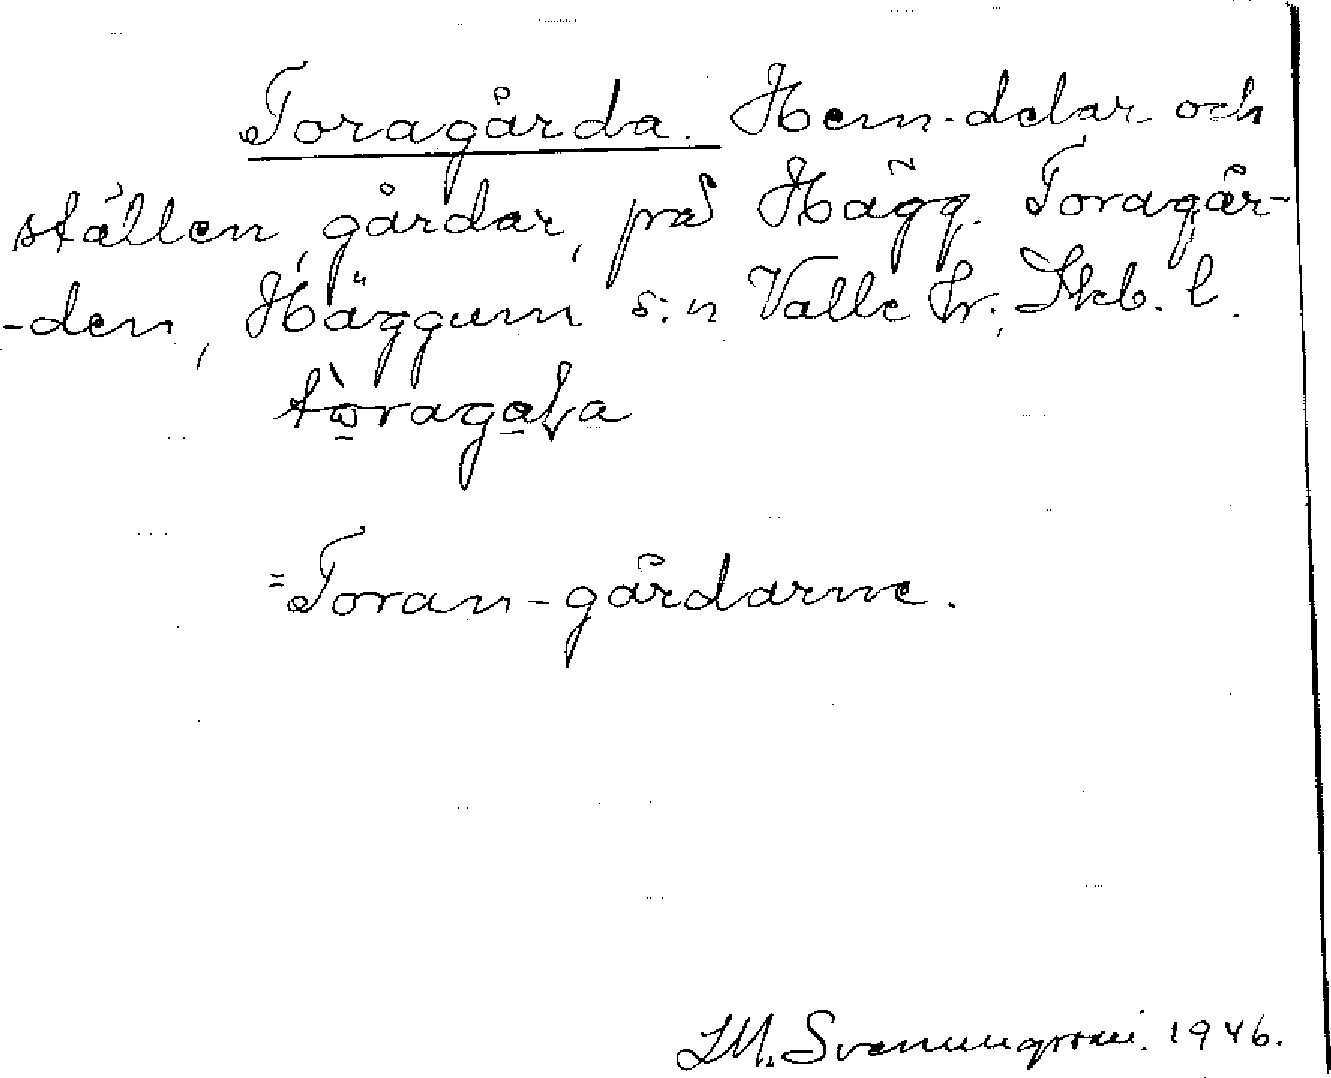 Toragårda. Hem-delar och
ställen, gårdar, på Hägg. Toragår-
-den, Häggum s:n Valle hr., Skb. l.
= Toran-gårdarne.
M. Svenungsson. 1946.